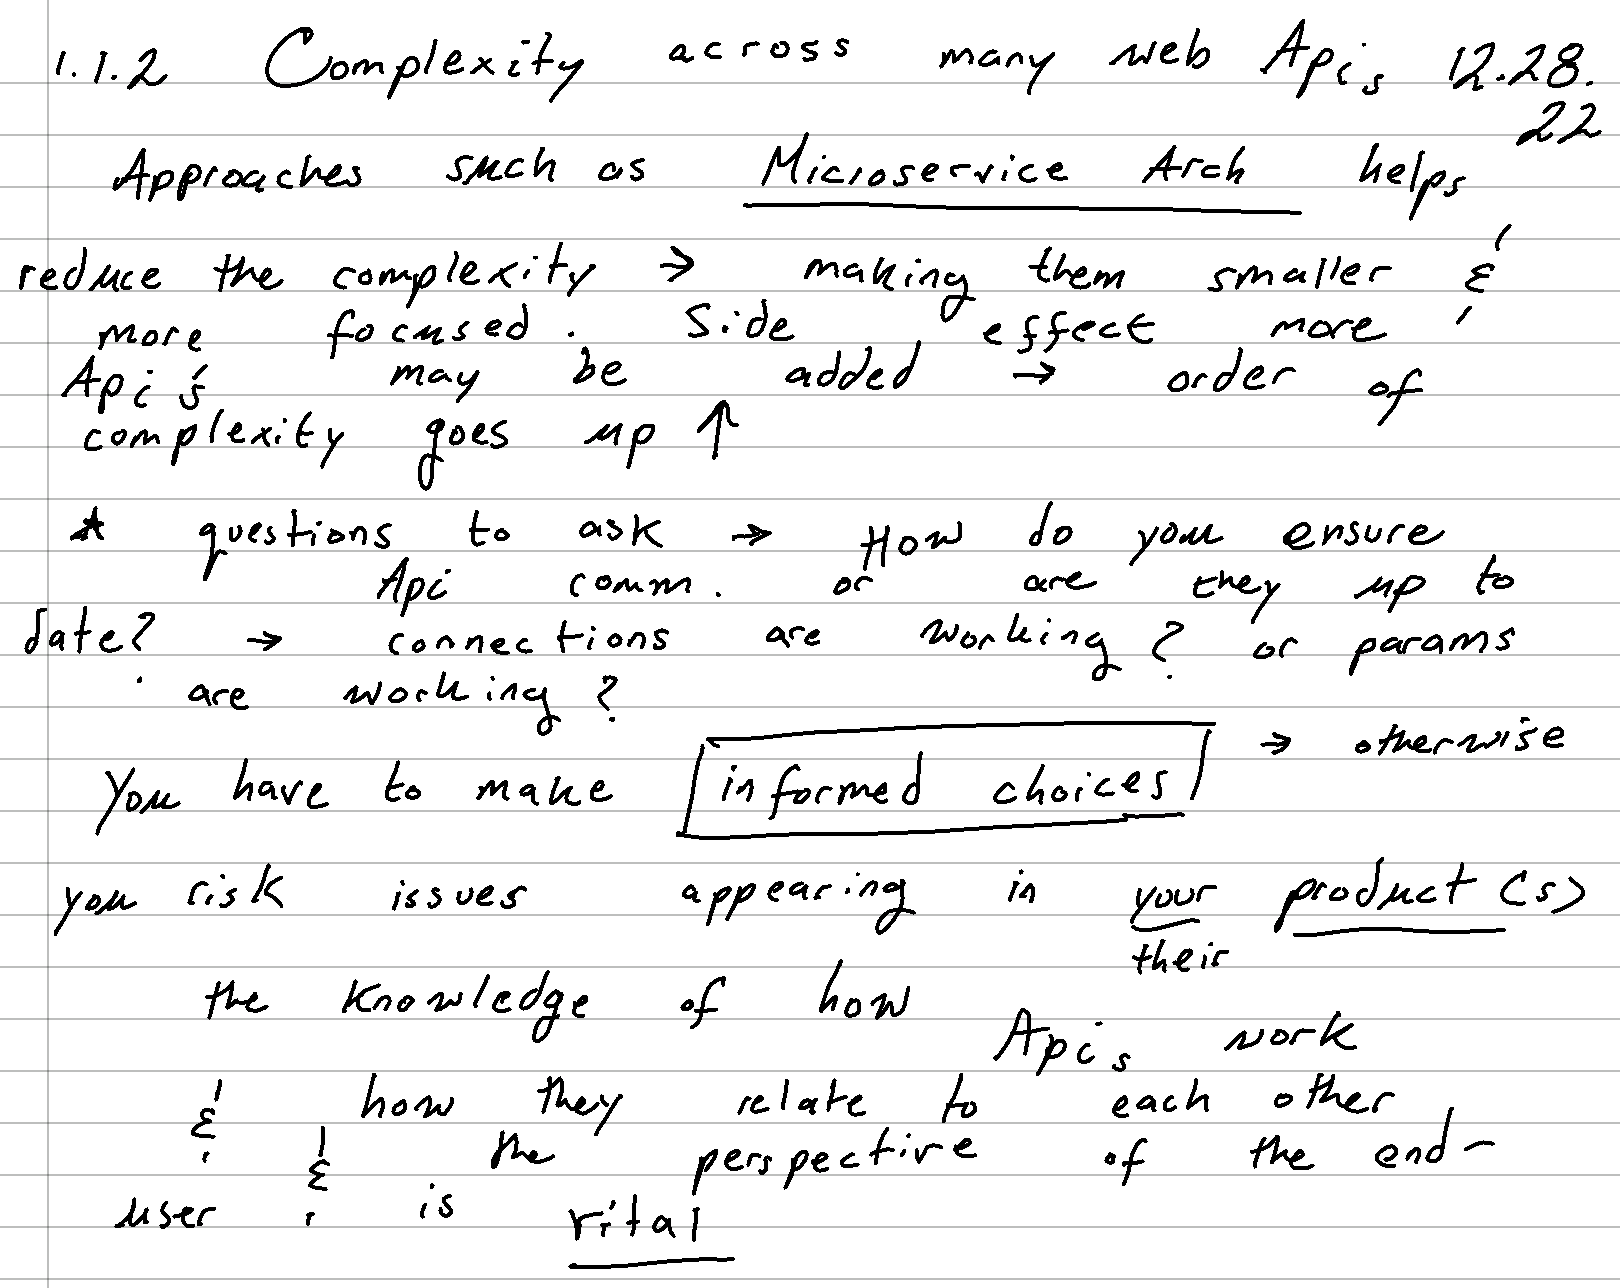 1.1.2 Complexity across many web Apis 12.28.
22
Approaches such as Microservice Arch helps
reduce the complexity → making them smaller &
more focused. Side effect more
Api's may be added → order of
complexity goes up ↑
* questions to ask → How do you ensure
Api comm. or are they up to
date? → connections are working? or params
are working?
You have to make informed choices → otherwise
you risk issues appearing in your product(s)
their
the knowledge of how Apis work
& how they relate to each other
& the perspective of the end-
user & is vital